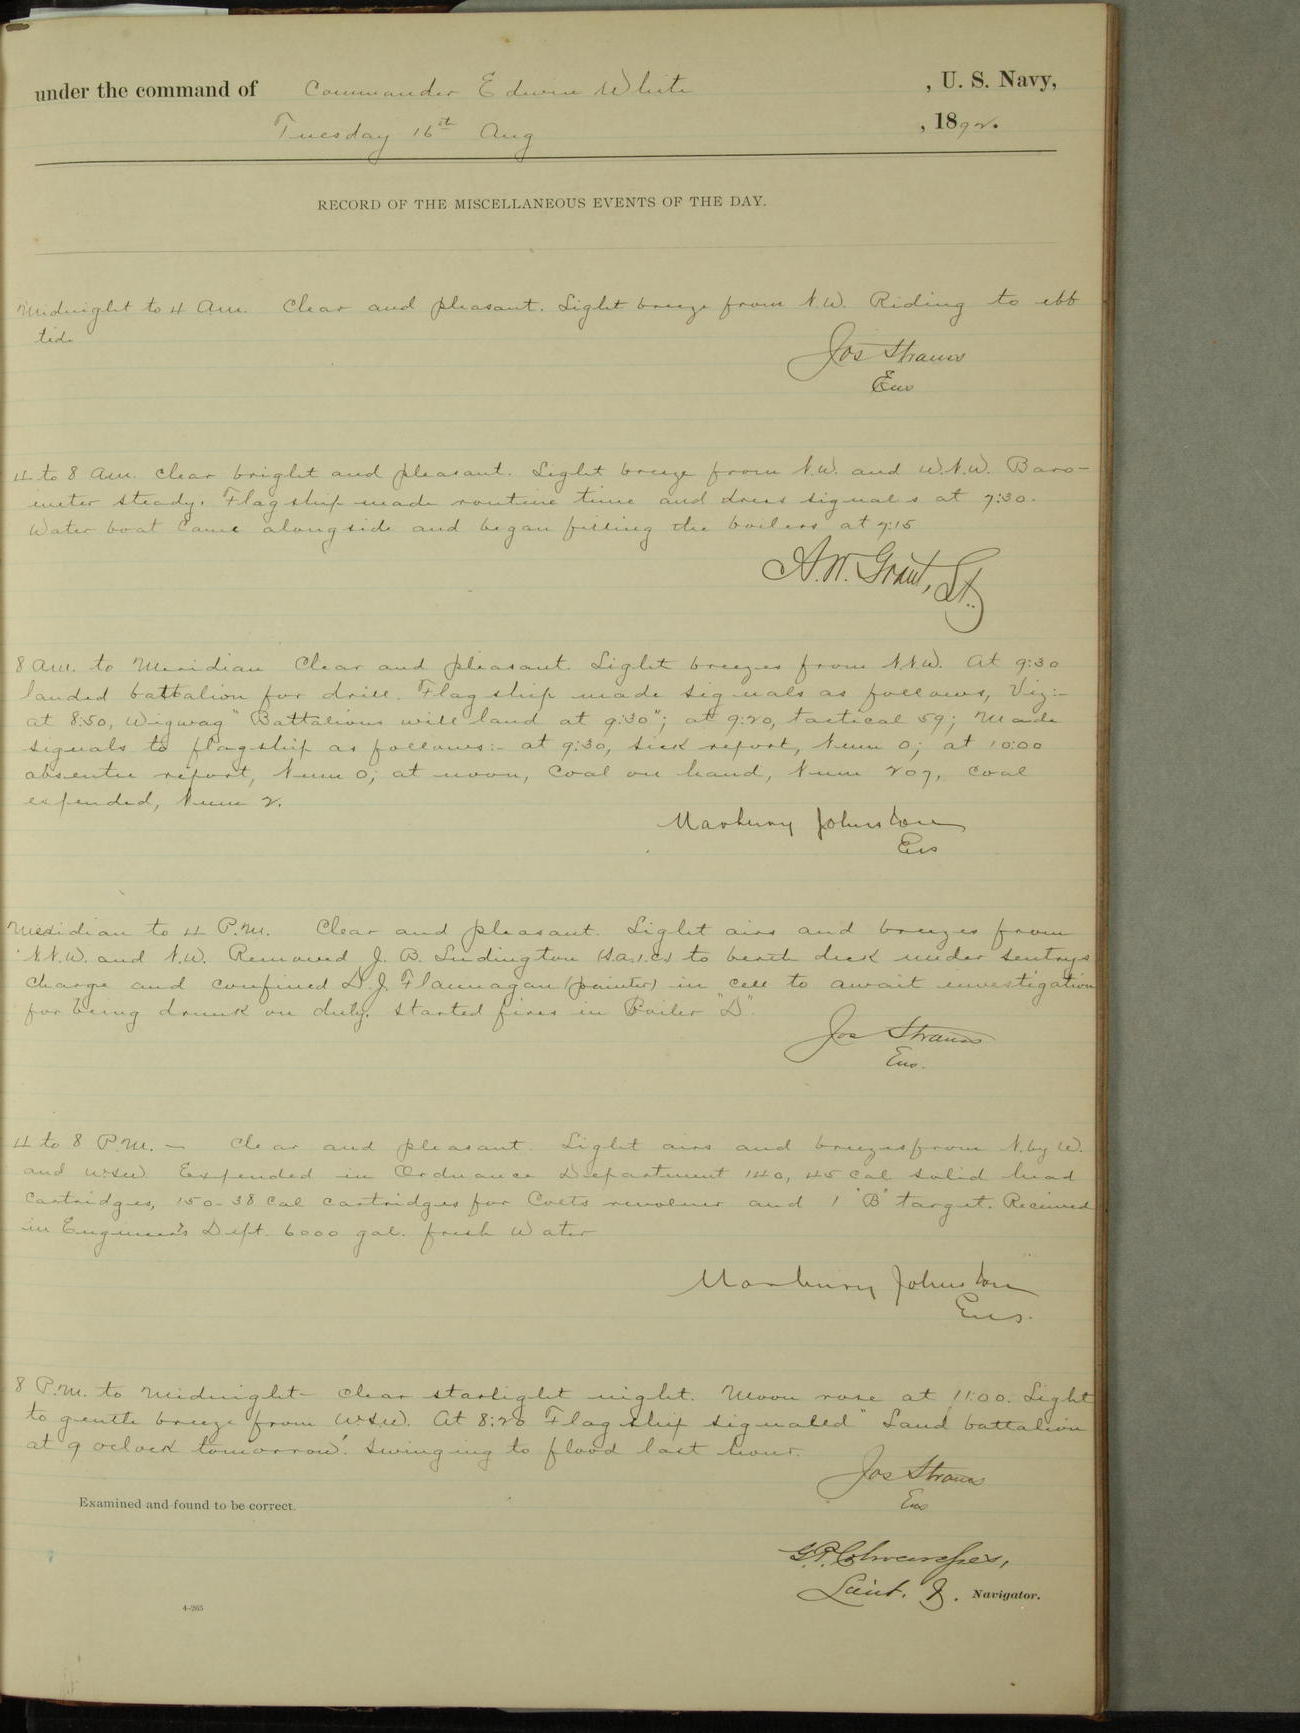 under the command of Commander Edwin White , U. S. Navy,
Tuesday 16th Aug , 1892.
RECORD OF THE MISCELLANEOUS EVENTS OF THE DAY.
Midnight to 4 Am. Clear and pleasant. Light breeze from N.W. Riding to ebb
tide
Jos Strauss
Ens
4 to 8 am. Clear bright and pleasant. Light breeze from N.W. and W.N.W. Baro-
meter steady. Flag ship made routine time and dress signals at 7:30.
Water boat came alongside and began filling the boilers at 7:15
A. W. Grant, Lt.
8 am. to Meridian Clear and pleasant. Light breezes from N.N.W. At 9:30
landed battalion for drill. Flag ship made signals as follows, Viz:-
at 8:50, Wigwag "Battalions will land at 9:30"; at 9:20, tactical 59; Made
signals to flagship as follows:- at 9:30, sick report, Num 0; at 10:00
absentee report, Num 0; at noon, Coal on hand, Num 207, Coal
expended, Num 2.
Marbury Johnston
Ens
Meridian to 4 P.M. Clear and pleasant. Light airs and breezes from
N.N.W. and N.W. Removed J. B. Ludington to berth deck under sentrys
charge and confined D. J. Flannagan (painter) in cell to await investigation
for being drunk on duty. Started fires in Boiler "D".
Jos Strauss
Ens.
4 to 8 P.M. — Clear and pleasant. Light airs and breezes from N. by W.
and W.S.W. Expended in Ordnance Department 140, 45 cal solid head
cartridges, 150-38 cal cartridges for Colts revolver and 1 "B" target. Received
in Engineer's Dept. 6000 gal. fresh water
Marbury Johnston
Ens.
8 P.M. to Midnight- Clear starlight night. Moon rose at 11:00. Light
to gentle breeze from W.S.W. At 8:20 Flag ship signaled "Land battalion
at 9 oclock tomorrow". Swinging to flood last hour.
Jos Strauss
Ens
Examined and found to be correct.
Lieut. Navigator.
4-265